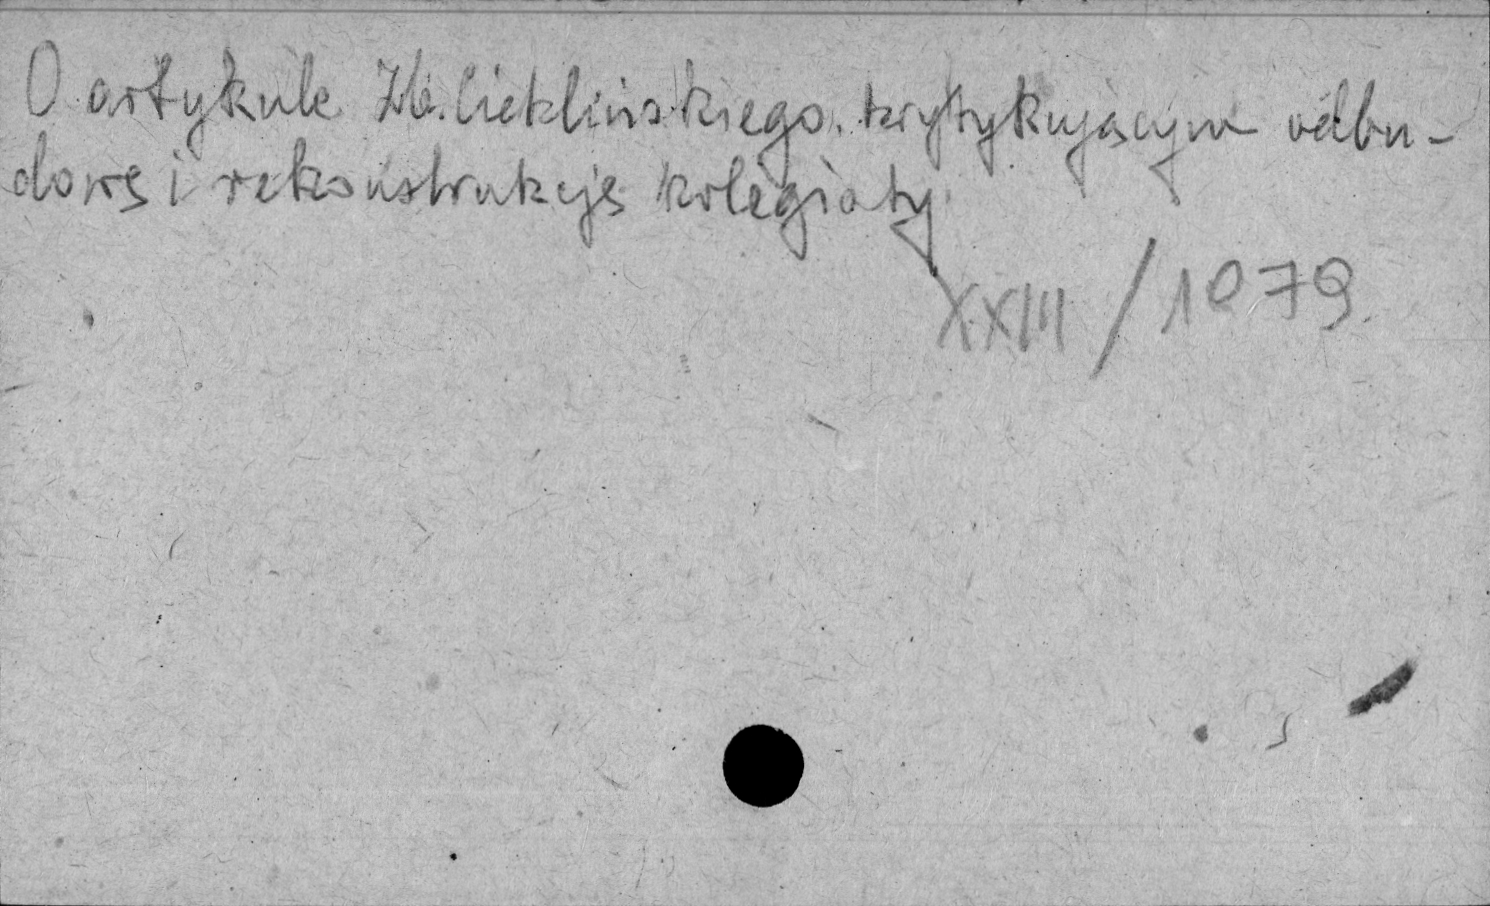 O artykule Zb. Cieklińskiego, krytykującym odbu-
dowę i rekonstrukcję kolegiaty
XXIII / 1079